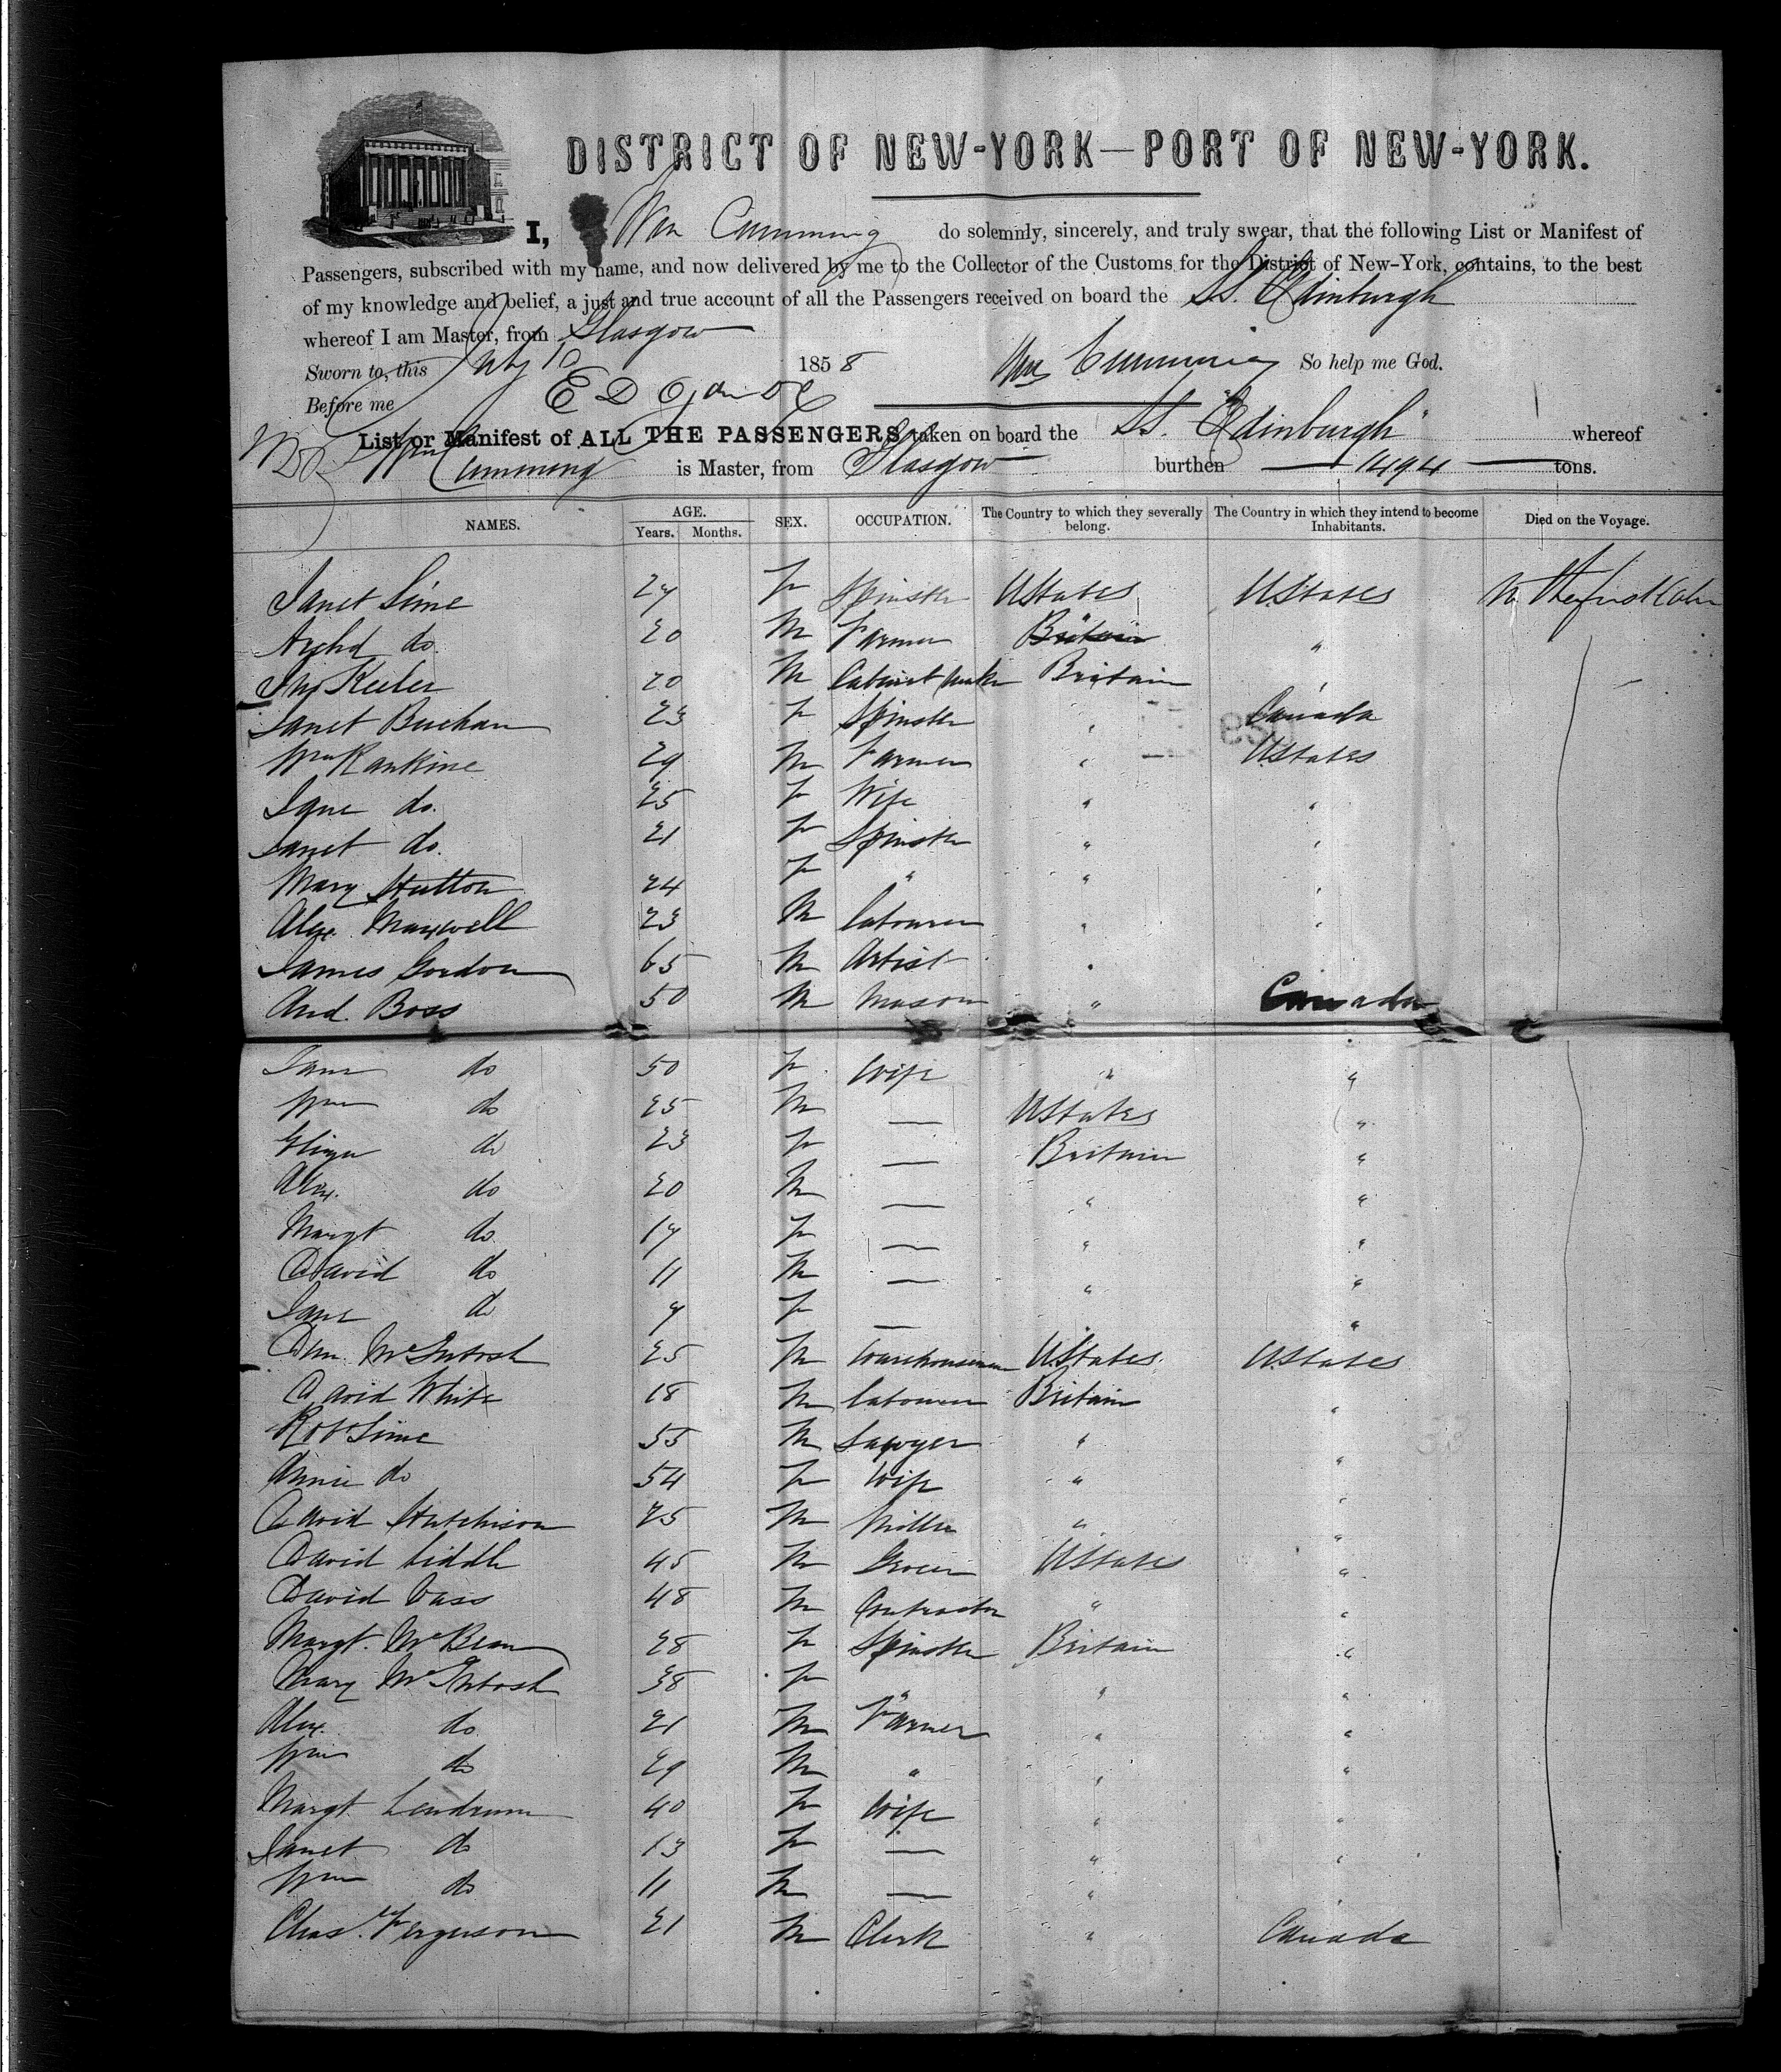 DISTRICT OF NEW-YORK—PORT OF NEW-YORK.
I, Wm Cumming do solemnly, sincerely, and truly swear, that the following List or Manifest of
Passengers, subscribed with my name, and now delivered by me to the Collector of the Customs for the District of New-York, contains, to the best
of my knowledge and belief, a just and true account of all the Passengers received on board the SS. Edinburgh
whereof I am Master, from Glasgow
Sworn to, this July 10 1858 Wm Cumming So help me God.
Before me
List or Manifest of ALL THE PASSENGERS taken on board the SS. "Edinburgh" whereof
Wm Cumming is Master, from Glasgow burthen 1494 tons.
NAMES. AGE. Years. Months. SEX. OCCUPATION. The Country to which they severally belong. The Country in which they intend to become Inhabitants. Died on the Voyage.
Janet Sime 27 F Spinster UStates UStates
Archd do. 20 M Farmer Britain "
Keeler 20 M Cabinet Maker Britain "
Janet Buchan 23 F Spinster " Canada
Wm Rankine 29 M Farmer " UStates
Jane do. 25 F Wife " "
Janet do. 21 F Spinster " "
Mary Hutton 24 F " " "
Alex. Maxwell 23 M Labourer " "
James Gordon 65 M Artist " "
And. Boss 50 M Mason " Canada
Jane do 50 F Wife " "
Wm do 25 M — UStates "
Eliza do 23 F — Britain "
Alex. do 20 M — " "
Margt do 17 F — " "
David do 11 M — " "
Jane do 7 F — " "
McIntosh 25 M Warehouseman UStates UStates
David White 18 M Labourer Britain "
Robt Sime 55 M Sawyer " "
Annie do 54 F Wife " "
David Hutchison 25 M Miller " "
David Liddle 45 M Grocer UStates "
David Vass 48 M Contractor " "
Margt. McBean 28 F Spinster Britain "
Mary McIntosh 38 F " " "
Alex. do 21 M Farmer " "
Wm do 29 M " " "
Margt Lendrum 40 F Wife " "
Janet do 13 F — " "
Wm do 11 M — " "
Chas. Ferguson 21 M Clerk " Canada